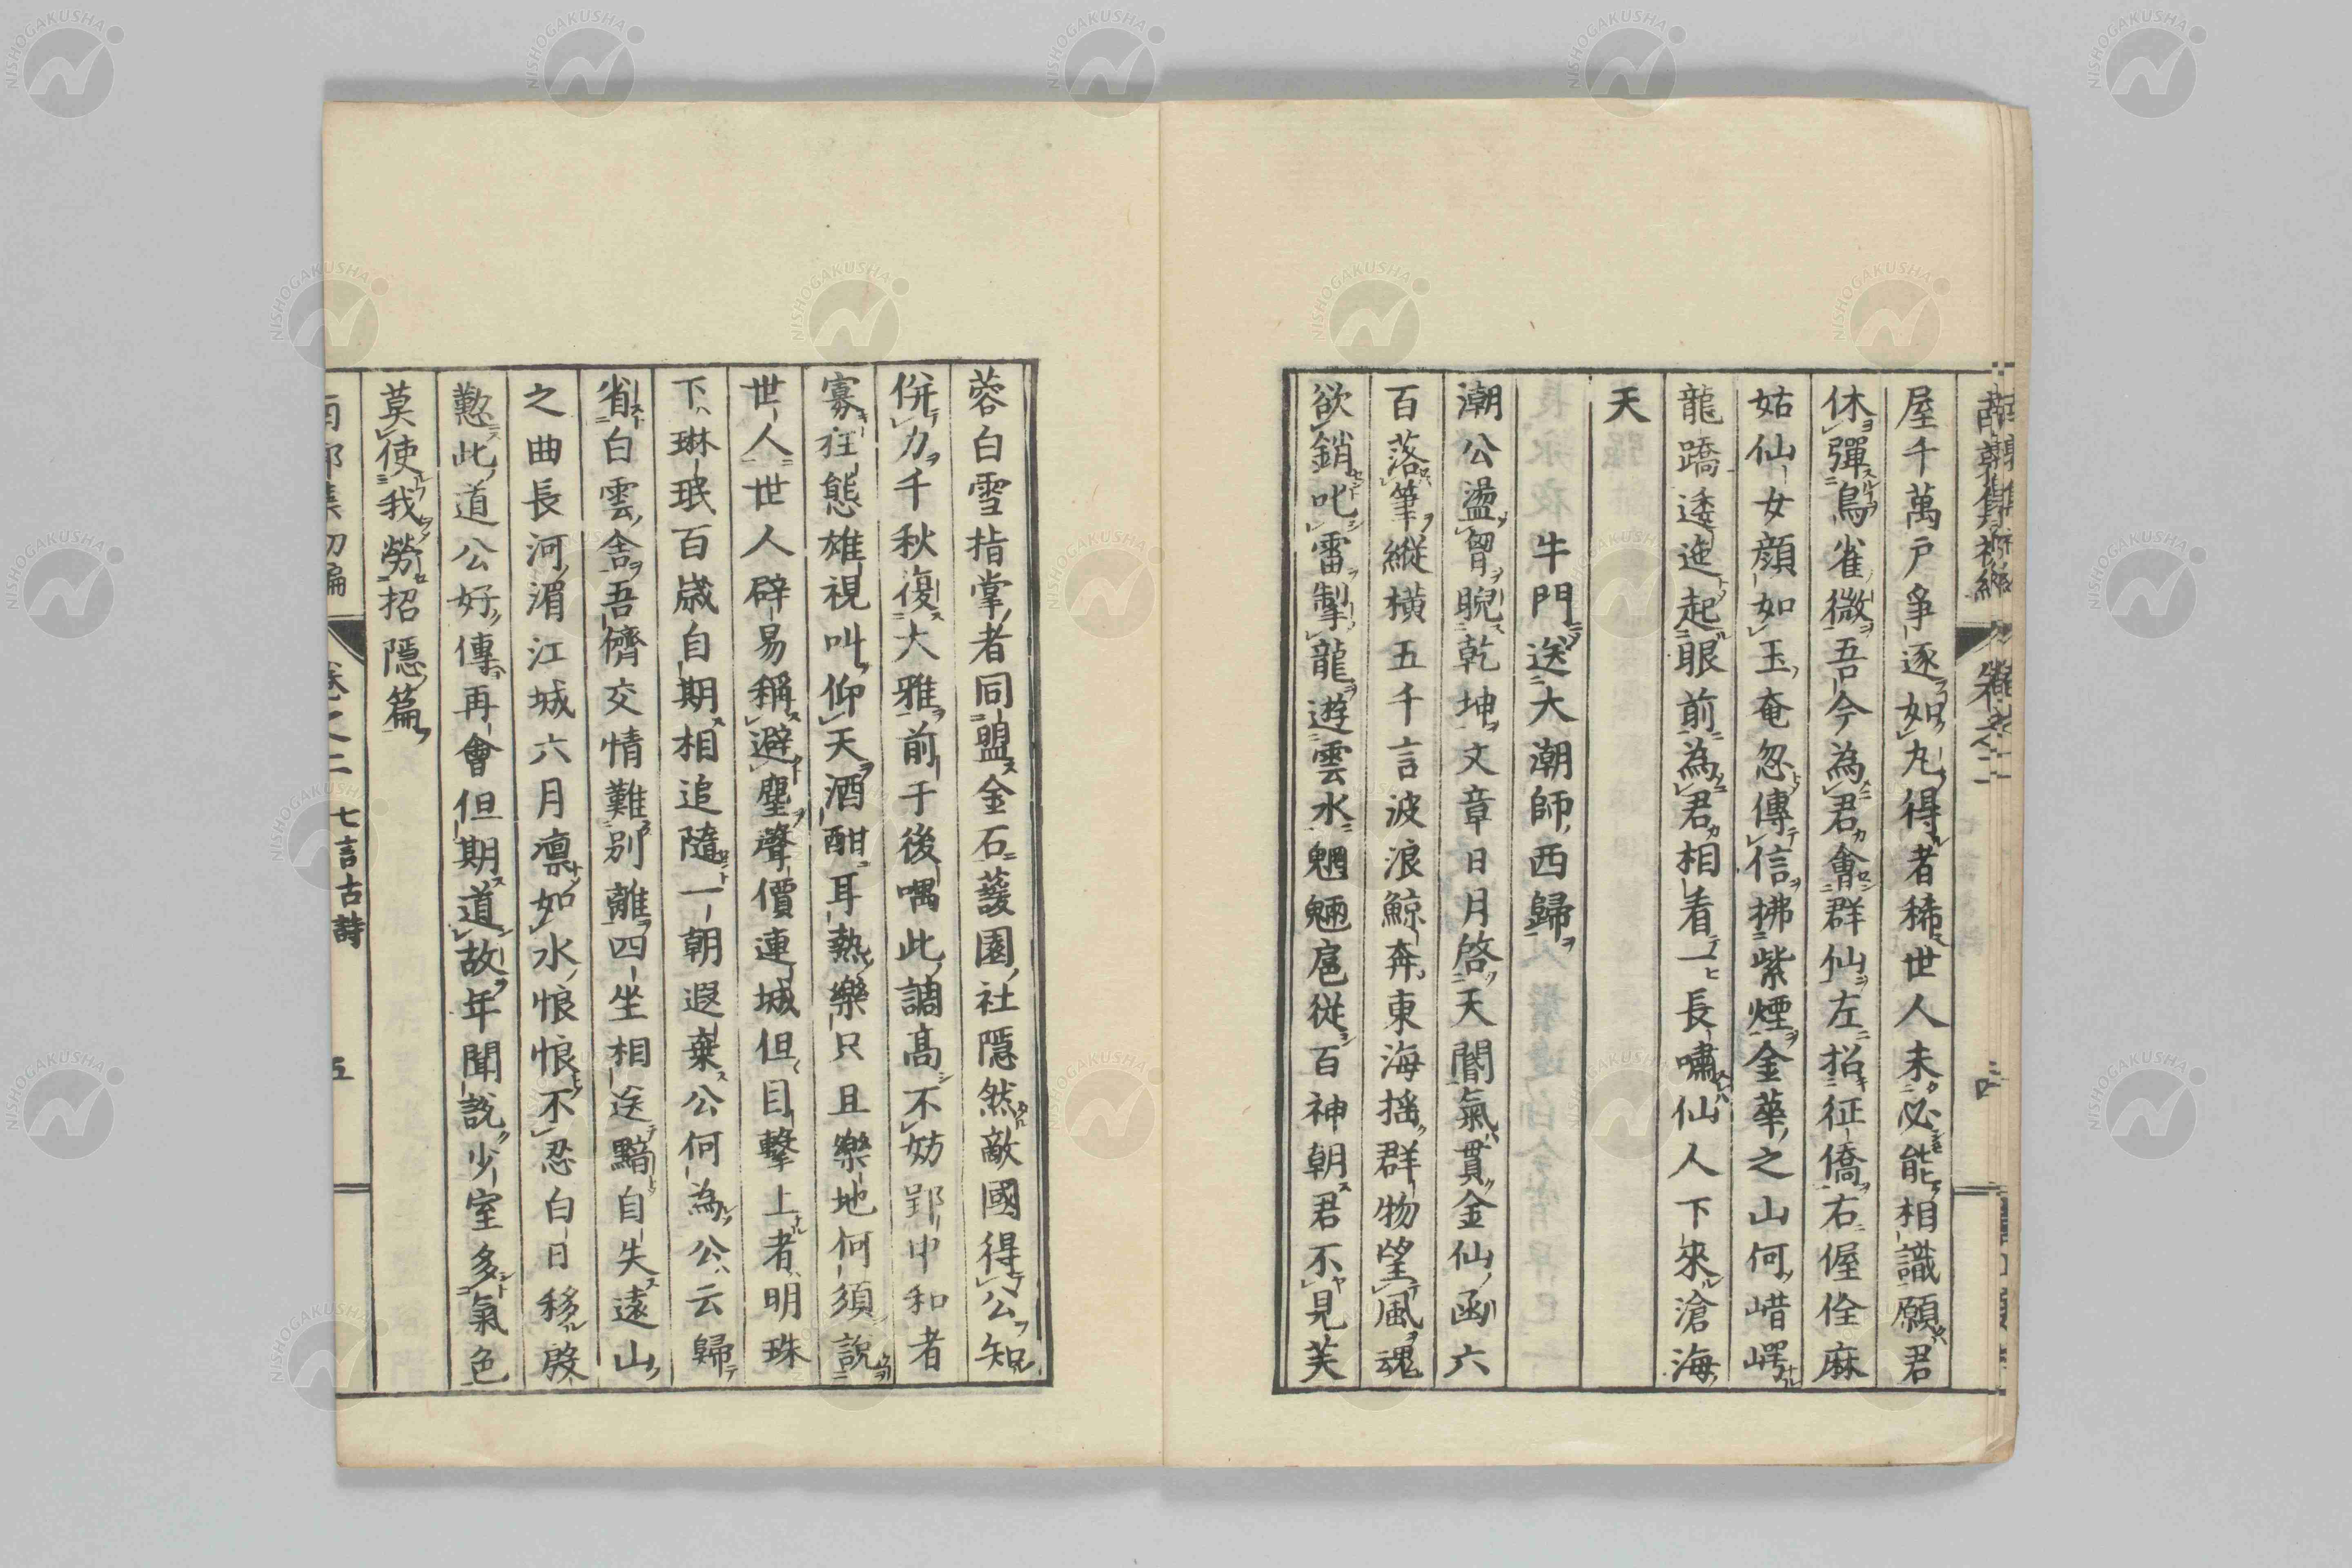 屋千萬戸爭逐如丸得者稀世人未必能相識願君
休彈鳥雀微吾今為君會群仙左招征僑右偓佺麻
姑仙女顔如玉奄忽傳信拂紫煙金華之山何崷崿
龍蹻逶迤起眼前為君相看一長嘯仙人下來滄海
天
牛門送大潮師西歸
潮公盪胷睨乾坤文章日月啓天閽氣貫金仙函六
百落筆縱橫五千言波浪鯨奔東海揺群物望風魂
欲銷叱雷掣龍遊雲水魍魎扈從百神朝君不見芙
蓉白雪指掌者同盟金石蘐園社隱然敵國得公知
併力千秋復大雅前于後喁此調高不妨郢中和者
寡狂態雄視叫仰天酒酣耳熱樂只且樂地何須說
世人世人辟易稱避塵聲價連城但目擊上者明珠
下琳珉百歳自期相追隨一朝遐棄公何為公云歸
省白雲舍吾儕交情難別離四坐相送黯自失遠山
之曲長河湄江城六月凛如水悢悢不忍白日移慇
懃此道公好傳再會但期道故年聞説少室多氣色
莫使我勞招隱篇
卷之二 七言古詩 五
NISHOGAKUSHA